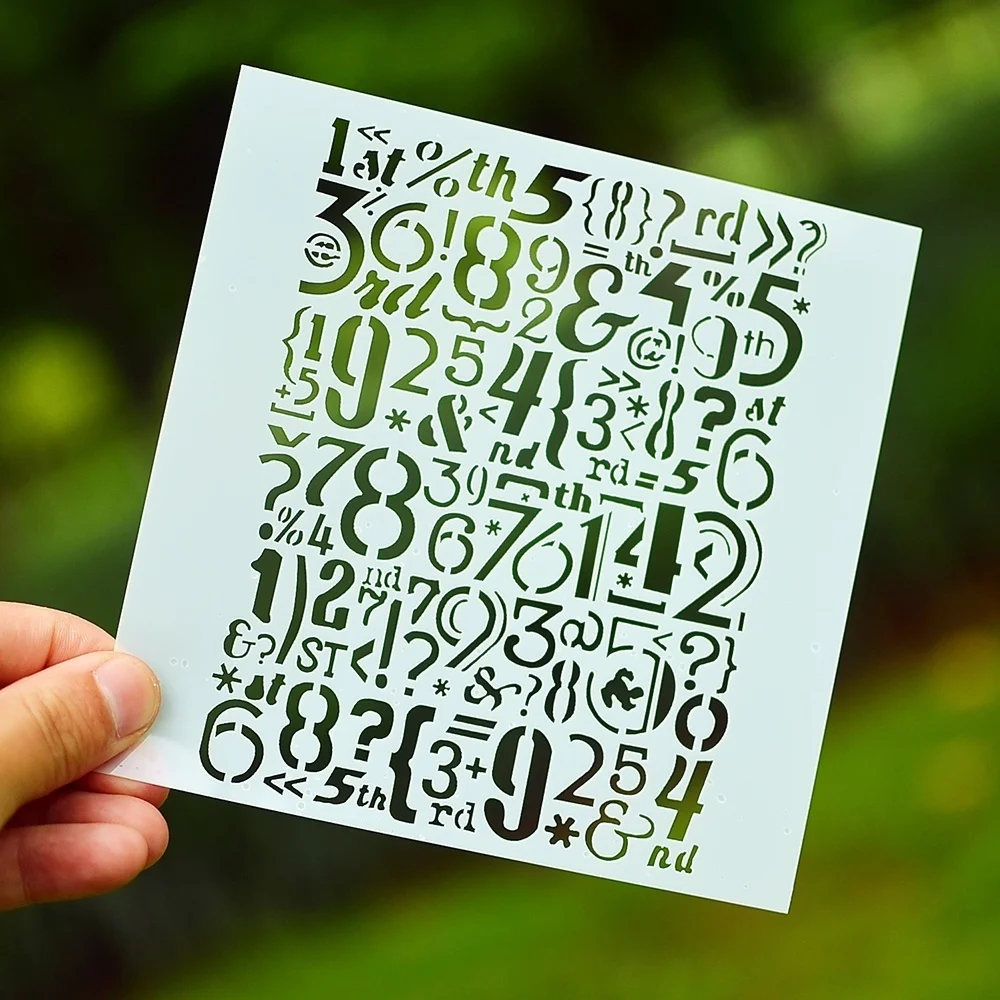 1st « % th 5 {8}? rd »?
3 % 6!89 = th 4 % 5*
@ rd 2 & @! 9 th
{1 9 2 5 4 { » 3 * 8 ? st
+5 * & < nd rd = 5 6
? 7 8 39 th
% 4 6 * 7 6 1 4 2
1) 2 nd 7 7 (9) 3 @ 5 < ?}
&? ST <!? * & ? 8 0
* st 6 8 ? { 3 + = 9 2 5 4
« 5th rd * & nd